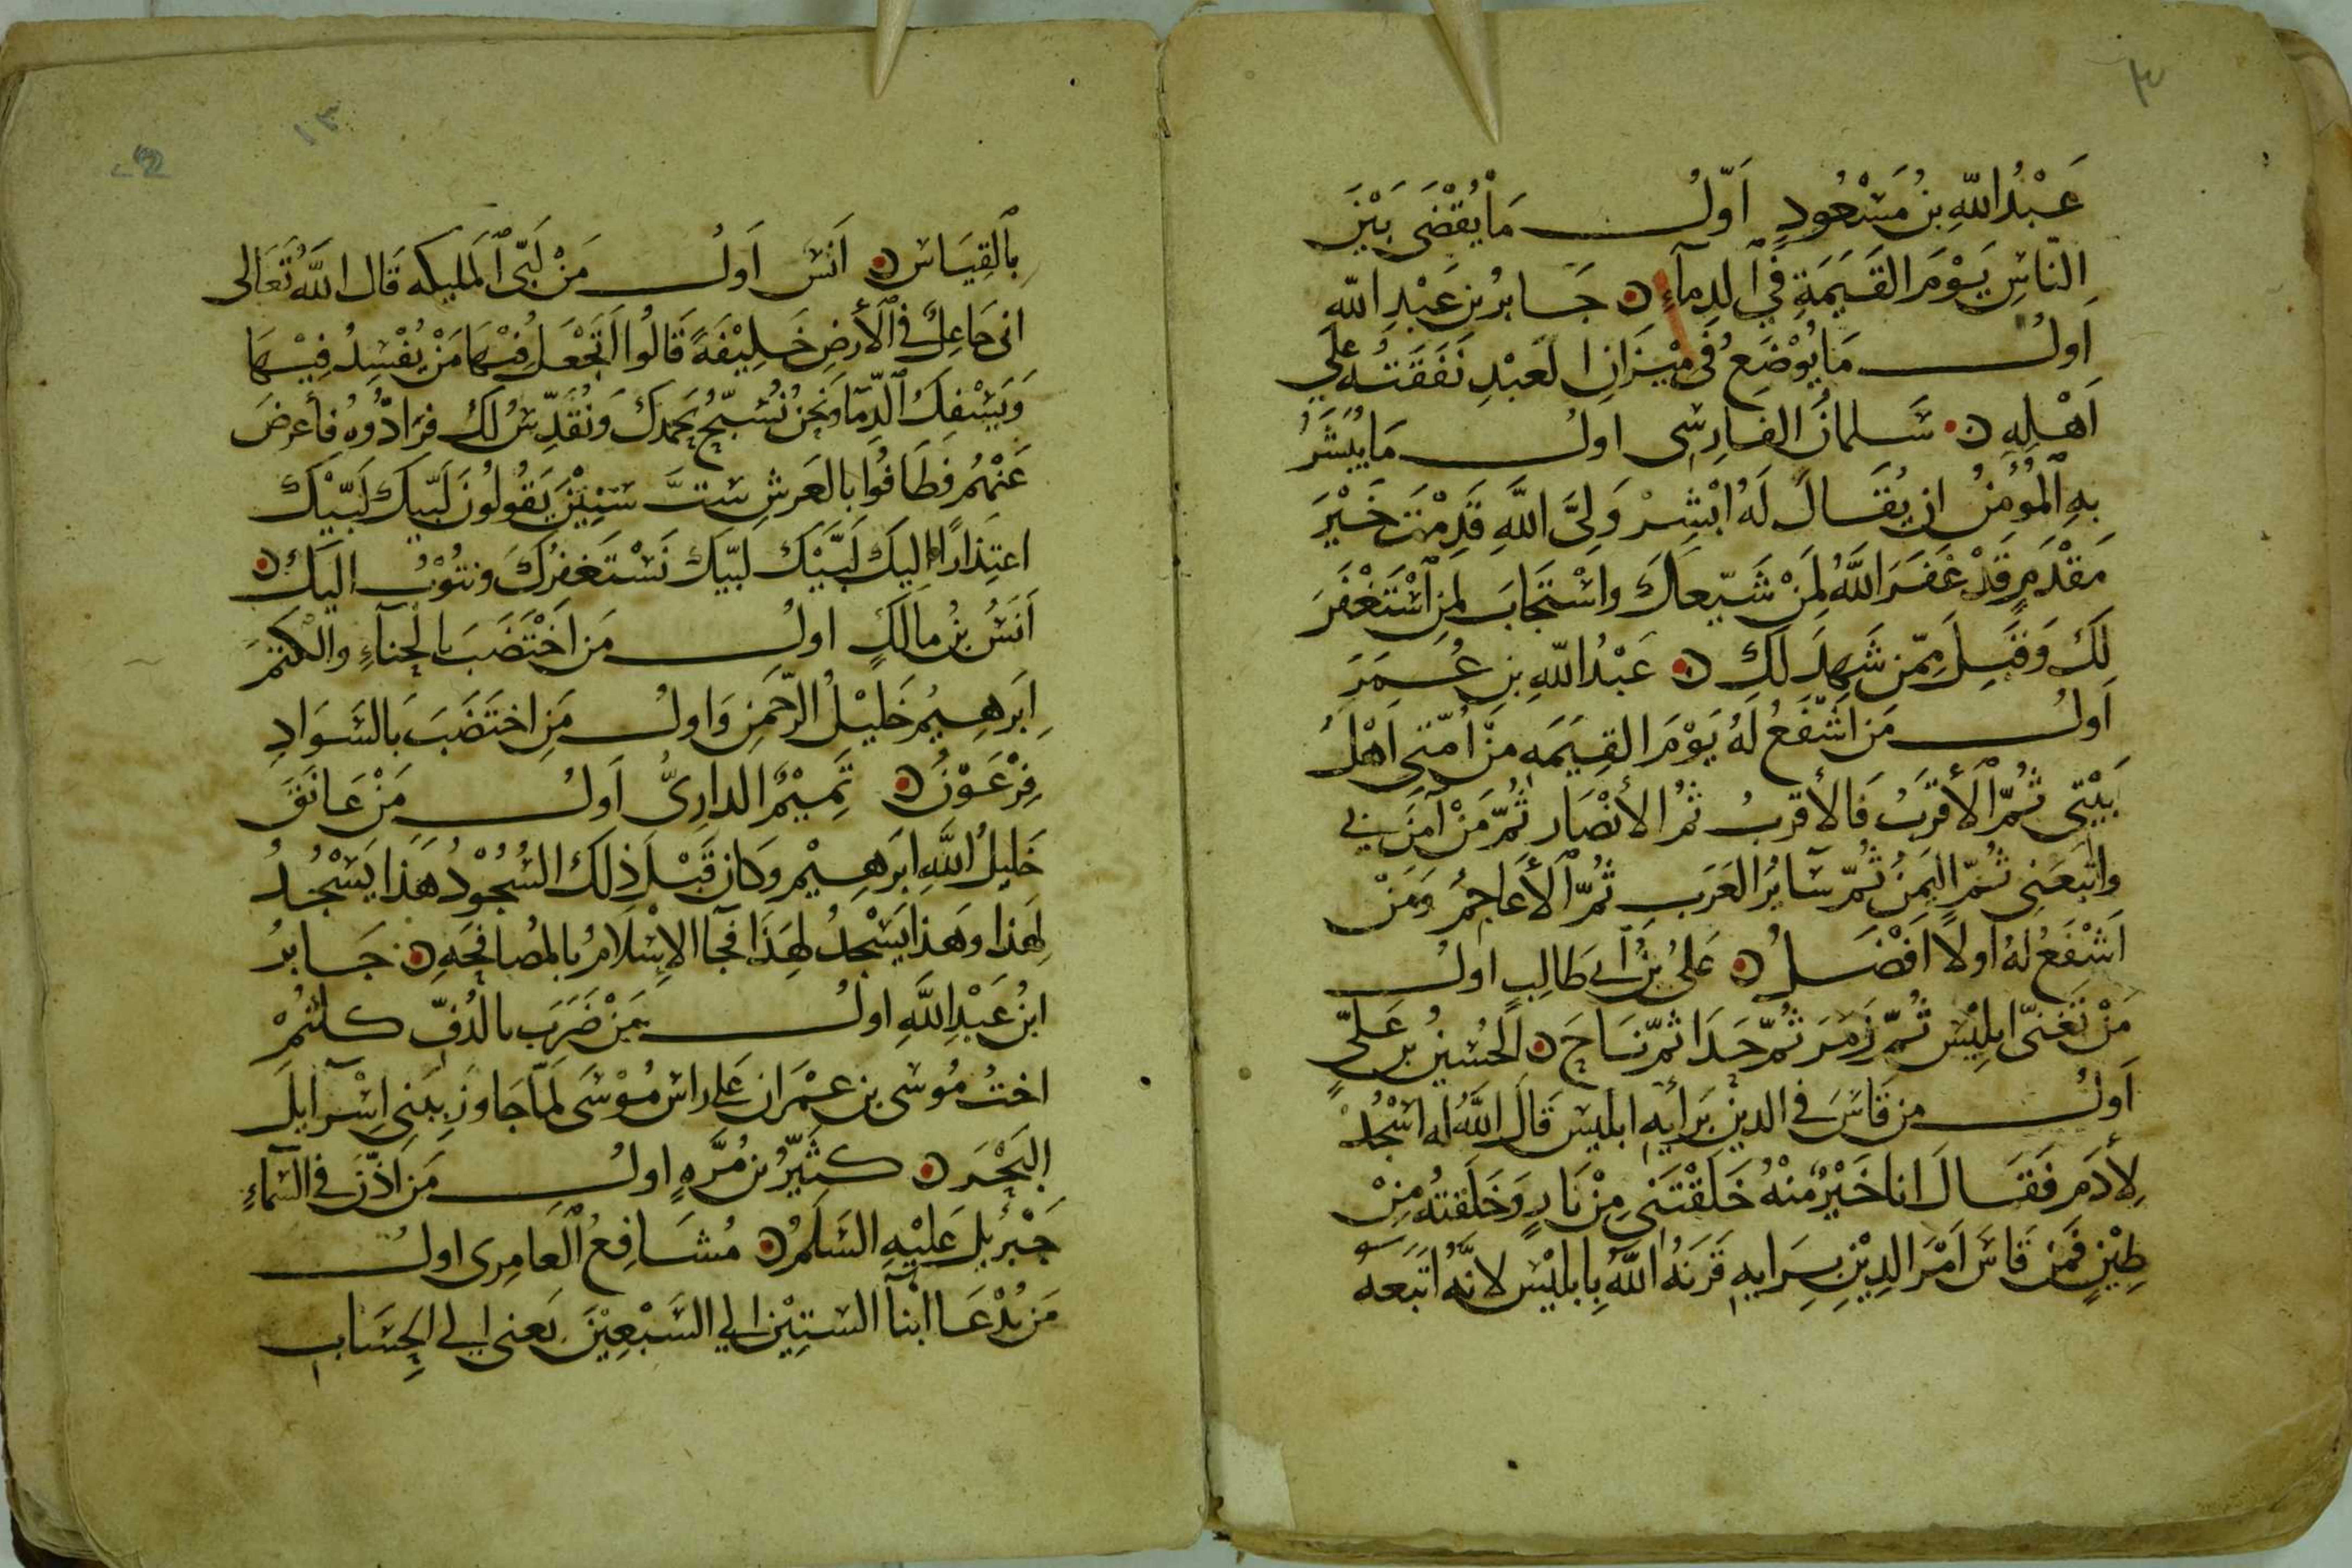 عَبْدُ اللّهِ بنُ مَسْعُودٍ اَوّلُ مَا يُقْضَى بَيْنَ
النّاسِ يَوْمَ القِيَمَةِ فِي الدِمآءِ ن جَابِرُ بن عَبْدِ اللّه
اَولُ مَا يُوْضَعُ فِى مِيْزَانِ العَبْدِ نَفَقَتُه علَى
اَهْلِهِ ن سَلمانُ الفارِسِى اولُ مَا يُبَشَّرُ
بهِ المُؤمِنُ ان يُقَالَ لَهُ ابْشِرْ وَلِىَّ اللهِ قَدِمْتَ خَيْرَ
مَقْدَمٍ قَدْ غَفَرَ اللَّهُ لِمَنْ شَيّعاكَ واسْتَجَابَ لِمَنِ اسْتَغْفَرَ
لكَ وَقَبِلَ مِمّن شَهِدَ لكَ ن عَبْدُ اللّهِ بنِ عُمَرَ
اَولُ مَن اَشْفَعُ لهُ يَوْمَ القِيَمَه مِنْ اُمّتى اهْلُ
بَيْتِى ثُمّ الأقرَبُ فَالأقربُ ثم الأنْصَار ثُمّ مَنْ آمَنَ بى
واتّبَعَنِى ثُمّ اليَمَنُ ثُمّ سَآئرُ العَرَبِ ثُمّ الأعَاجِمُ وَمَنْ
اَشْفَعُ لهُ اَولاً اَفْضَلُ ن عَلىُ بنُ اَبى طَالِبٍ اولُ
مَنْ تَغَنىّ ابلِيْسُ ثُمّ زَمَرَ ثُمّ حَدَا ثمّ نَاحَ ن الحُسَينُ بن عَلىٍّ
اَولُ من قَاسَ فى الدينْ بَرائِهِ ابليس قَالَ اللَّهُ لَه اسْجُدْ
لأدَمَ فَقَالَ انا خَيْرٌ مِنْهُ خَلَقْتَنى مِنْ نَارٍ وَخَلَقتهُ مِنْ
طِيْنٍ فَمَن قَاسَ اَمْرَ الدِيْنِ بِرَايهِ قَرَنَهُ اللّهُ بِابليْسَ لانّهُ اتّبَعَهُ
بالقِيَاسِ ن اَنَس اَولُ مَنْ لَبّى المليكه قَال اللَّهُ تَعَالى
انى جَاعِلٌ فى الأرضِ خَلِيْفَةً قَالُوا اَتَجْعَلُ فِيْهَا مَنْ يُفْسِدُ فِيْهَا
وَيَسْفِكُ الدِّمَا ونَحنُ نُسَبّحُ بحَمدكَ وَنُقَدِّسُ لكَ فرَادُّوهُ فأعرضَ
عَنْهُم فَطَافُوا بِالعَرشِ ستَّ سِنِيْنَ يَقُولُونَ لَبّيكَ لَبّيْكَ
اعتِذارًا اليكَ لَبَّيْكَ لَبّيكَ نَسْتَغفِرُكَ ونتُوْبُ اليكَ ن
اَنَسُ بنُ مالكٍ اولُ مَن اخْتَضَبَ بالحِناءِ والكَتَمِ
اِبَرهِيمُ خَليْلُ الرّحمَنِ وَاولُ مَنِ اختَضَبَ بَالسَّوَادِ
فِرْعَوْنُ ن تَمِيْمُ الدارِىُّ اَولُ مَنْ عَانَقَ
خَليلُ اللَّهِ ابَرهِيْم وَكان قَبْلَ ذلكَ السُجُوْدُ هَذا يَسْجُدُ
لِهَذا وهَذا يَسْجدُ لهَذَا فجآ الاِسْلامُ بالمُصافحَهِ ن جَابرُ
ابنُ عَبْدِ اللَّهِ اولُ مَنْ ضَرَبَ بالدُفّ كلثُمْ
اختُ مُوسَى بن عِمْرَان عَلى راس مُوْسَى لمّا جَاوزَ ببَنِى اِسْرآيلَ
البَحْرَ ن كثَيّرُ بن مُرَّهٍ اولُ مَن اَذّنَ فى السَمآءِ
جَبْرُيلَ عَلَيْهِ السَلَمُ ن مُسَافِعُ العَامِرِى اولُ
مَن يُدْعَا ابنآ الستيْنَ الى السَبْعِيْنَ يَعنى الى الحِسَابِ